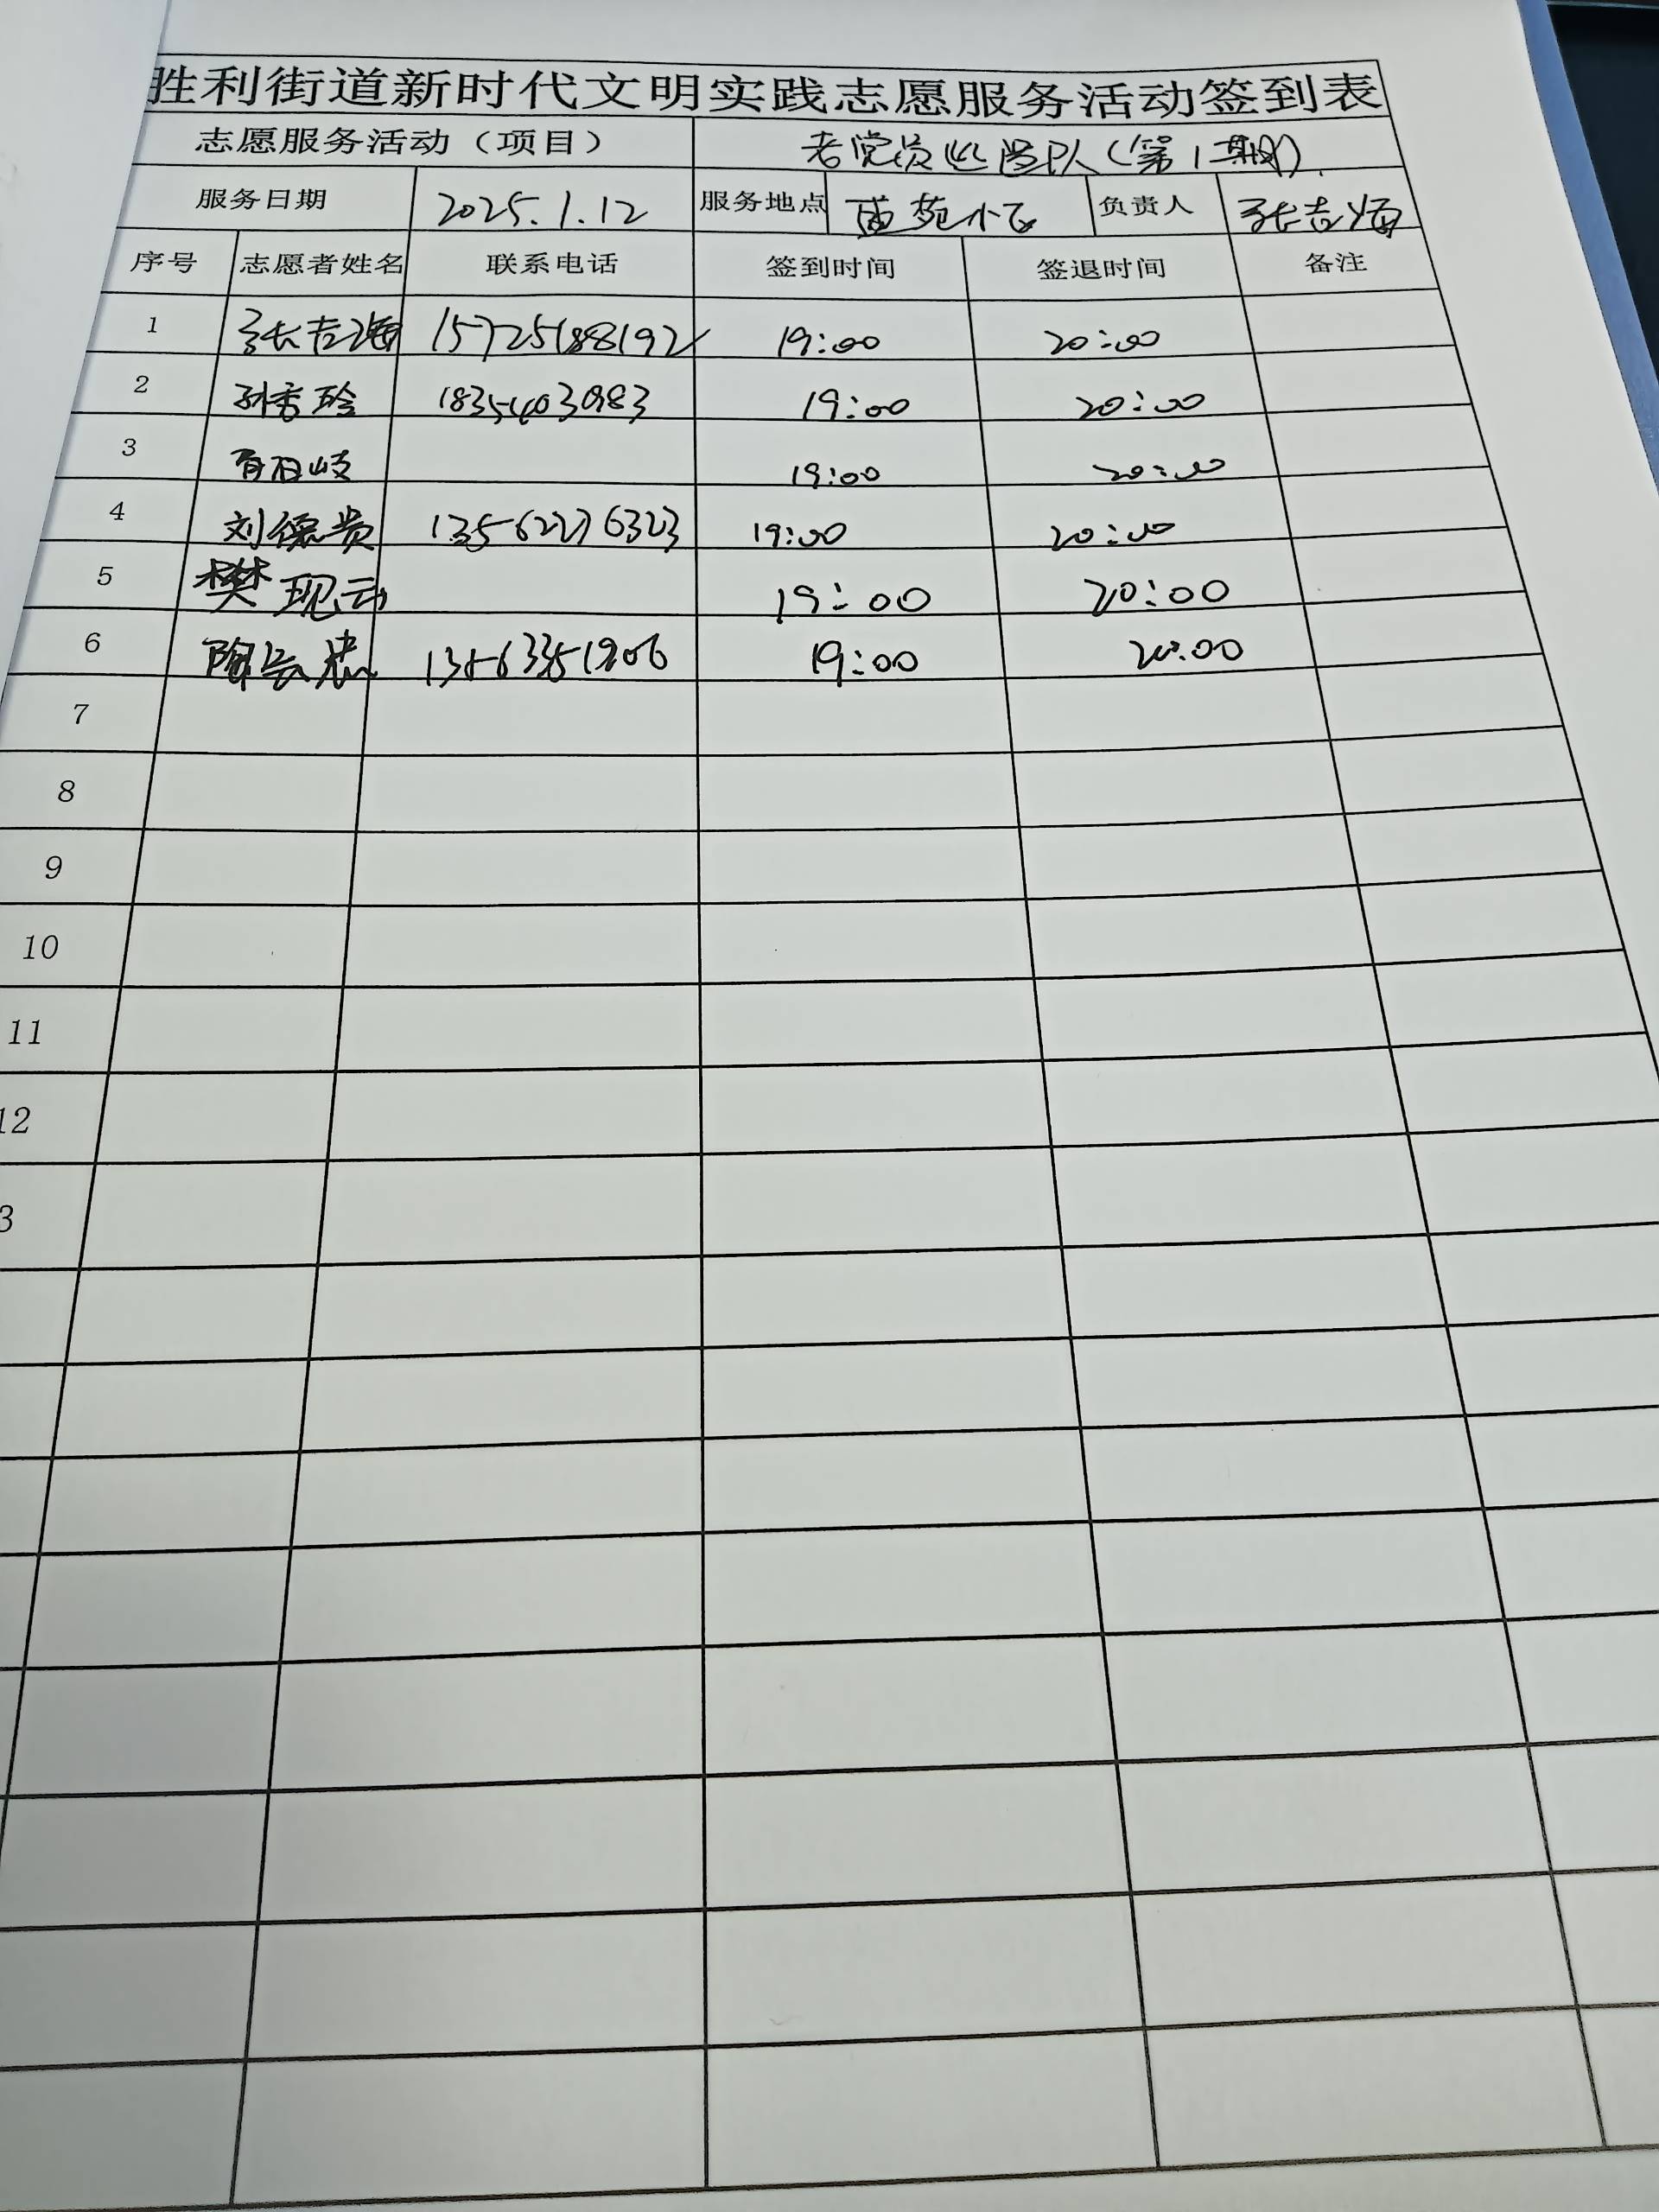 胜利街道新时代文明实践志愿服务活动签到表
志愿服务活动（项目） 老党员巡逻队（第1期）
服务日期 2025.1.12 服务地点 苗苑小区 负责人 张吉海
序号 志愿者姓名 联系电话 签到时间 签退时间 备注
1 张吉海 15725188192 19:00 20:00
2 孙秀玲 18354030983 19:00 20:00
3 19:00 20:00
4 刘德贵 13562276323 19:00 20:00
5 樊现云 19:00 20:00
6 陶云忠 13563351906 19:00 20:00
7
8
9
10
11
12
3